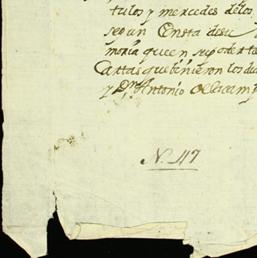 tulos y mercedes delos
segun Consta desu
moria que en su poder te
Cartas que tubieron los du
y Dn Antonio
N. 117